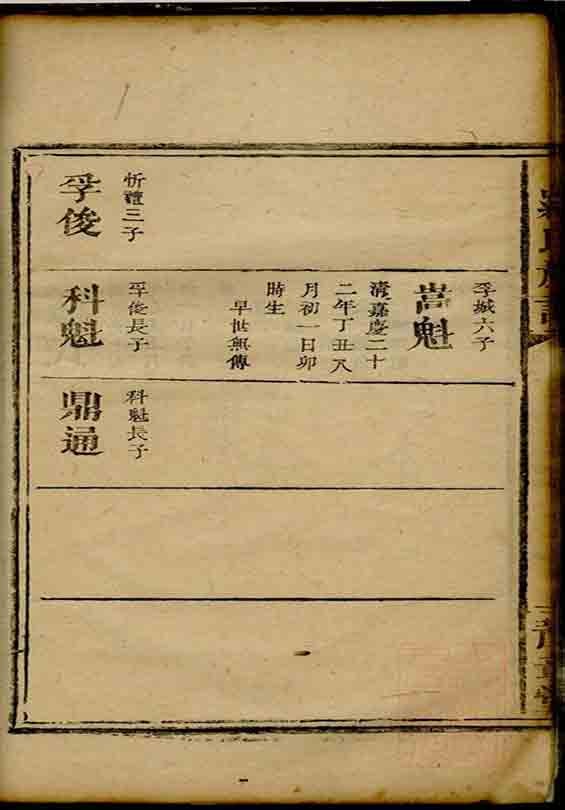 忻禮三子
孚俊
孚城六子
嵩魁
清嘉慶二十
二年丁丑八
月初一日卯
時生
早世無傳
孚俊長子
科魁
科魁長子
鼎通